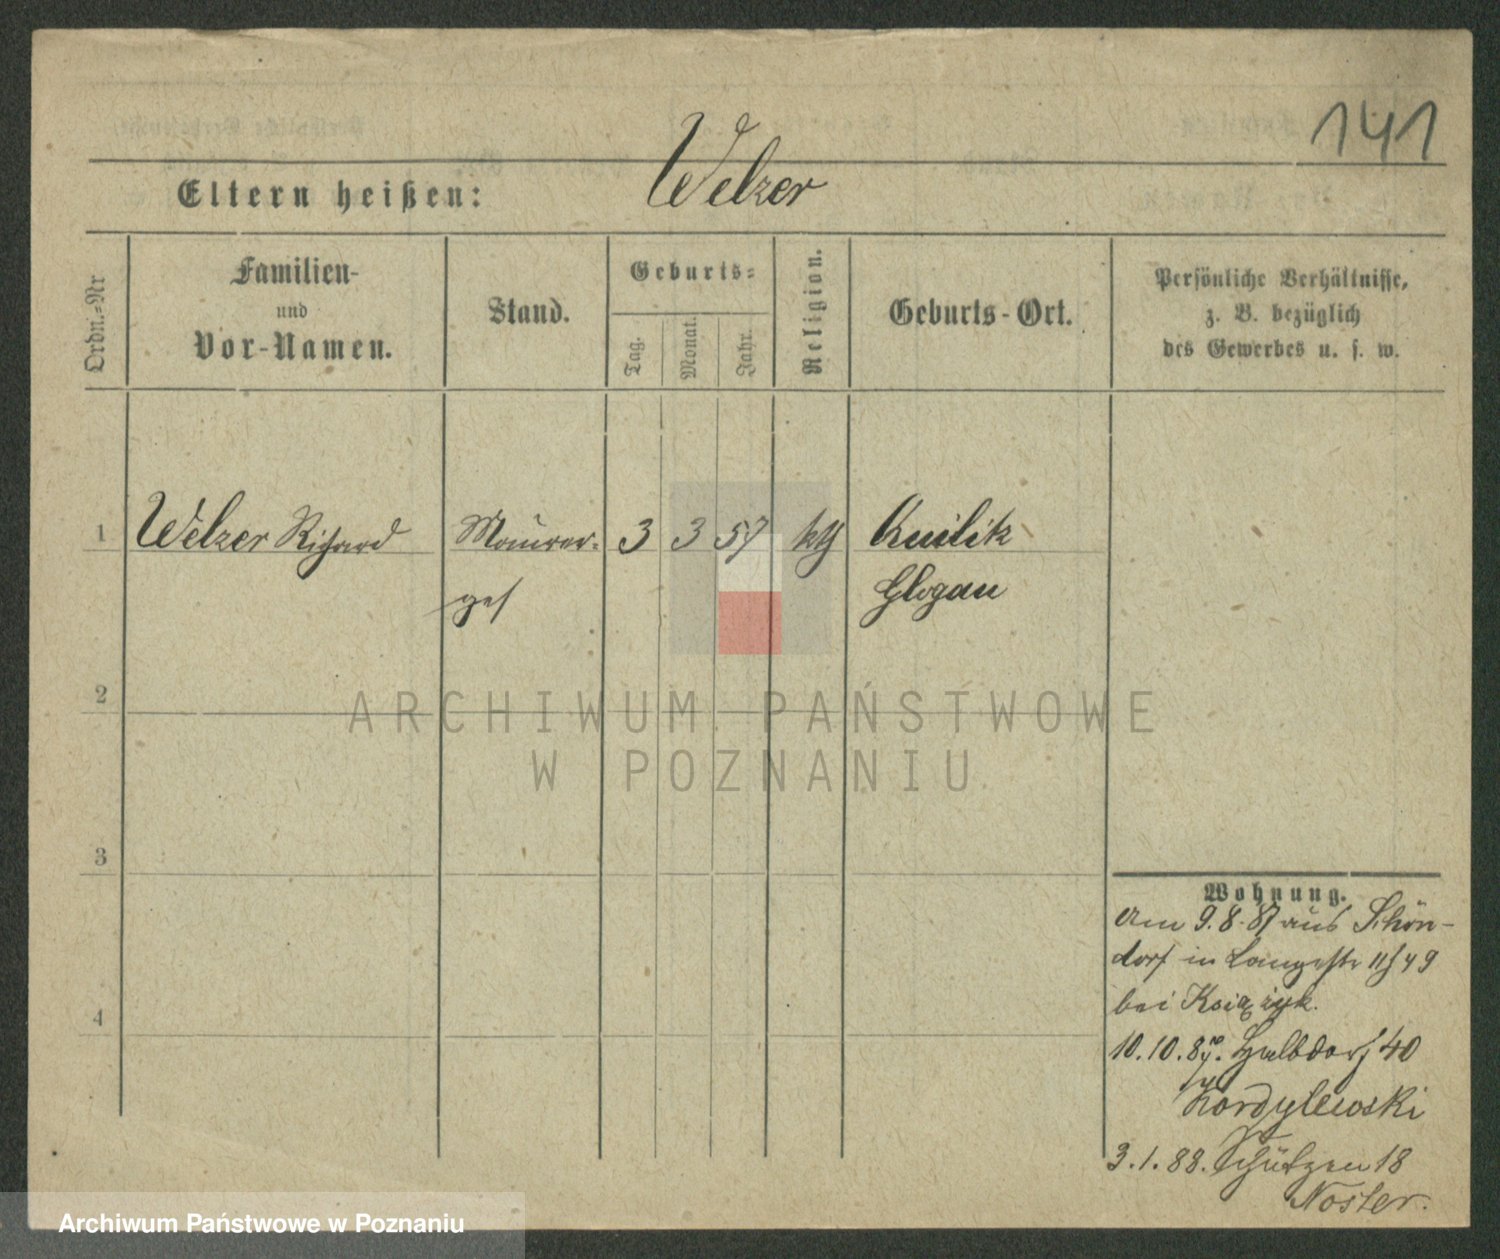 141
Welzer
Eltern heißen:
Ordn.-Nr
Familien-
und
Vor-Namen.
Stand.
Geburts-
Tag.
Monat.
Jahr.
Religion.
Geburts-Ort.
Persönliche Verhältnisse,
z. B. bezüglich
des Gewerbes u. s. w.
1 Welzer Richard Maurer- 3 3 57 kth Kuilik
ges Glogau
2
ARCHIWUM PAŃSTWOWE
W POZNANIU
3
4
Wohnung.
am 9.8.87 aus Schön-
dorf in Langestr 11/49
bei Książyk.
10.10.87. Halbdorf 40
Kordylewski
3.1.88. Schützen 18
Noster.
Archiwum Państwowe w Poznaniu